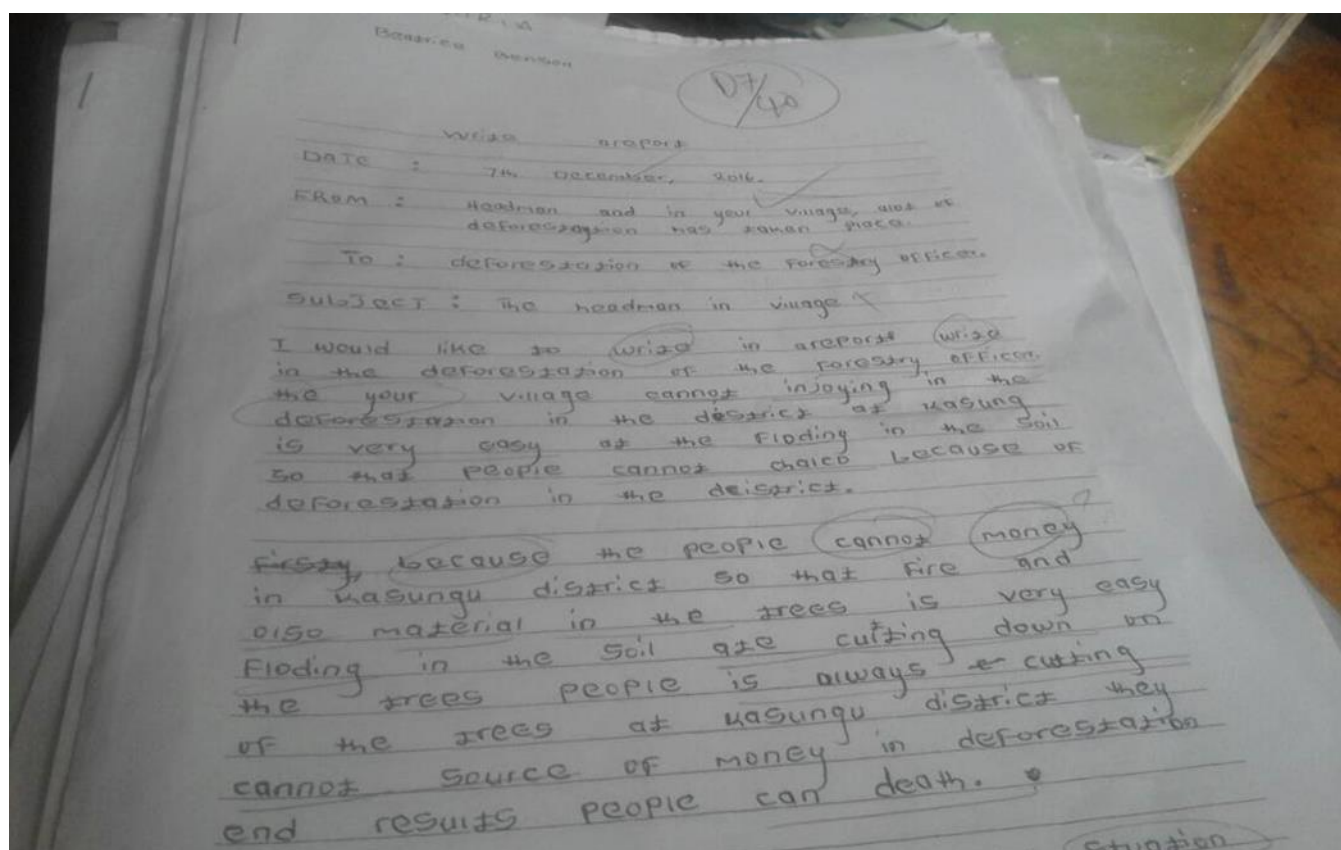 D7/40
write areport
DATE : 7th December, 2016.
FROM : Headman and in your village, alot of
deforestation has taken place.
To : deforestation of the Forestry officer.
SUBJECT : The headman in village
I would like to write in areports write
in the deforestation of the Forestry officer.
the your village cannot injoying in the
deforestation in the district at Kasung
is very easy at the Floding in the Soil
so that people cannot because of
deforestation in the deistrict.
Firstly, because the people cannot money ?
in Kasungu district so that Fire and
also material in the trees is very easy
Floding in the Soil are cutting down on
the trees people is always cutting
of the trees at Kasungu district they
cannot Source of money in deforestation
end results people can death.